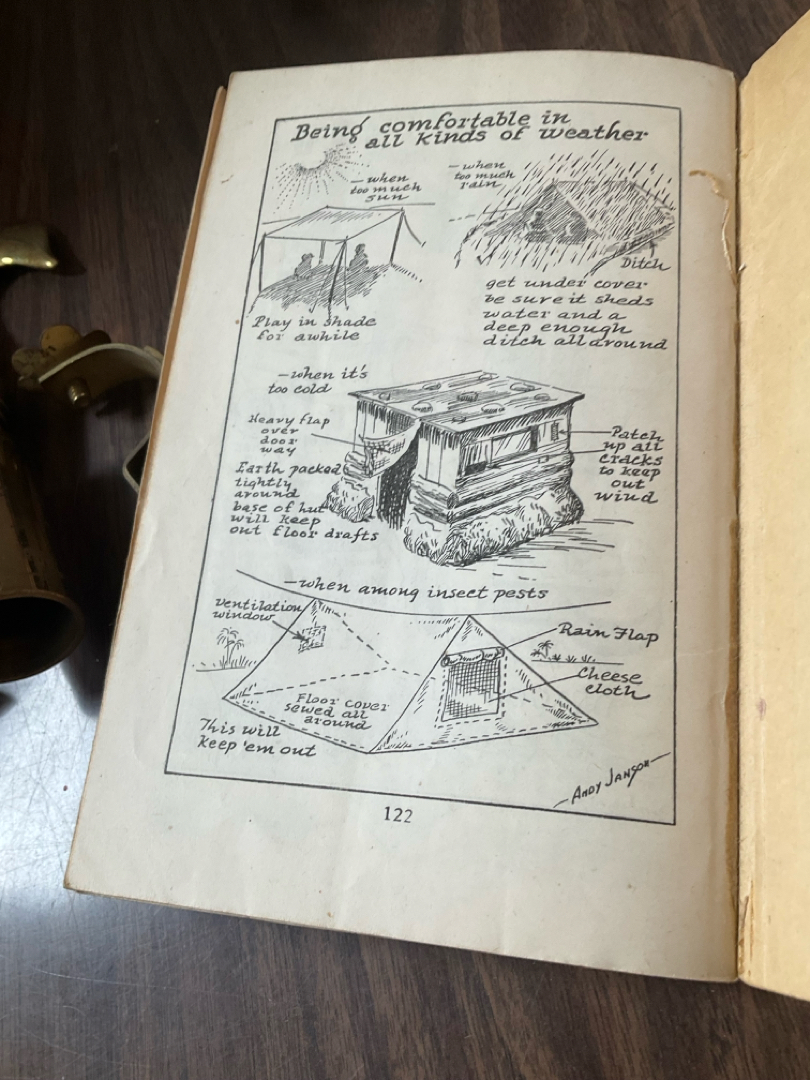 Being comfortable in
all kinds of weather
—when
too much
sun
Play in shade
for awhile
—when
too much
rain
Ditch
get under cover
be sure it sheds
water and a
deep enough
ditch all around
—when it's
too cold
Heavy flap
over
door
way
Earth packed
tightly
around
base of hut
will keep
out floor drafts
Patch
up all
cracks
to keep
out
wind
—when among insect pests
ventilation
window
Rain Flap
Cheese
cloth
Floor cover
sewed all
around
This will
keep 'em out
—ANDY JANSON—
122